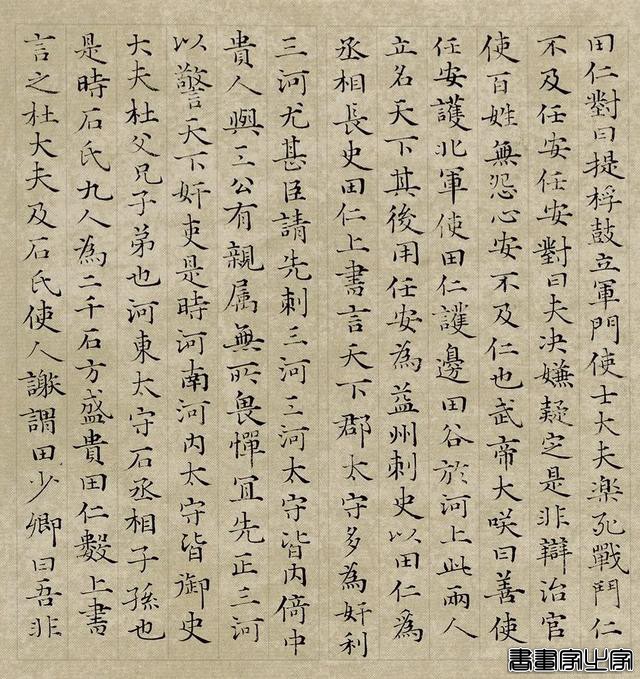 田仁對曰提桴鼓立軍門使士大夫樂死戰鬥仁
不及任安任安對曰夫決嫌疑定是非辯治官
使百姓無怨心安不及仁也武帝大咲曰善使
任安護北軍使田仁護邊田谷於河上此兩人
立名天下其後用任安為益州刺史以田仁為
丞相長史田仁上書言天下郡太守多為奸利
三河尤甚臣請先刺三河三河太守皆內倚中
貴人與三公有親属無所畏憚冝先正三河
以警天下奸吏是時河南河內太守皆御史
大夫杜父兄子弟也河東太守石丞相子孫也
是時石氏九人為二千石方盛貴田仁數上書
言之杜大夫及石氏使人謝謂田少卿曰吾非
書畫家出字